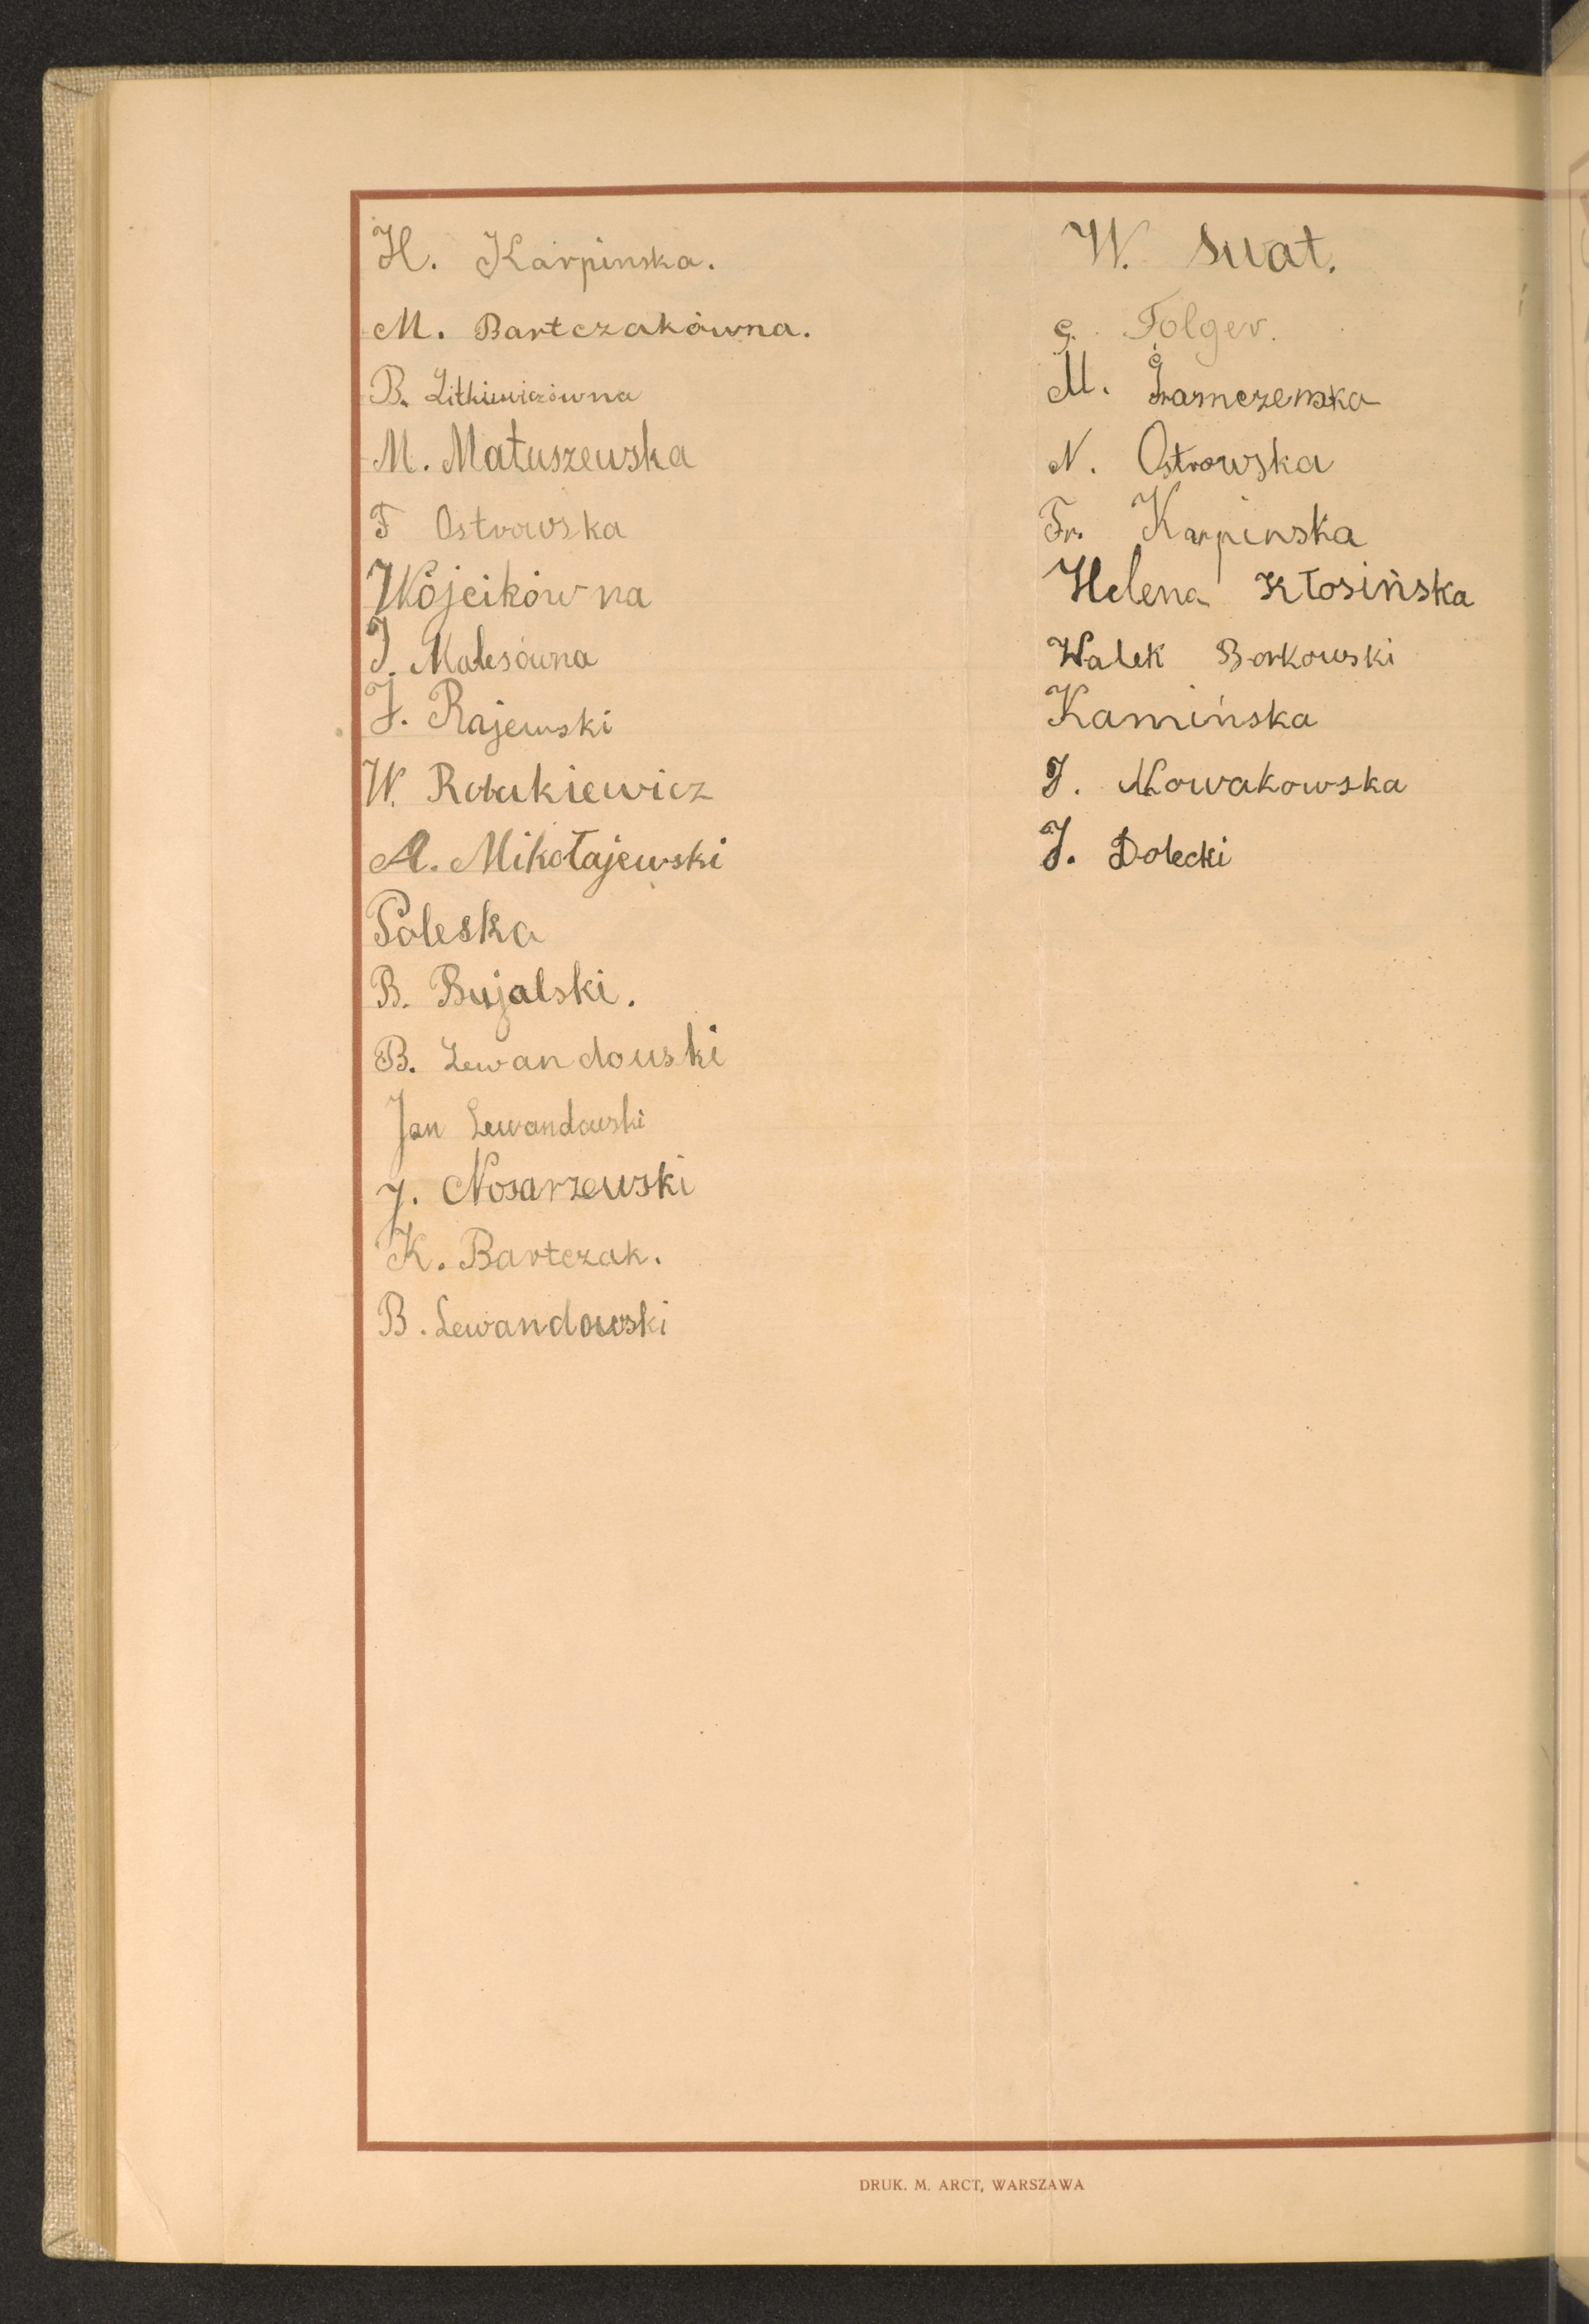 H. Karpinska.
M. Bartczakówna.
B. Litkiewiczówna
M. Matuszewska
F Ostrowska
Wójcikówna
J. Malesówna
J. Rajewski
W. Robakiewicz
A. Mikołajewski
Poleska
B. Bujalski.
B. Lewandowski
Jan Lewandowski
J. Nosarzewski
K. Bartczak.
B. Lewandowski
W. Swat.
G. Folger.
M.
N. Ostrowska
Fr. Karpinska
Helena Kłosińska
Walek Borkowski
Kamińska
J. Nowakowska
J. Dolecki
DRUK. M. ARCT, WARSZAWA